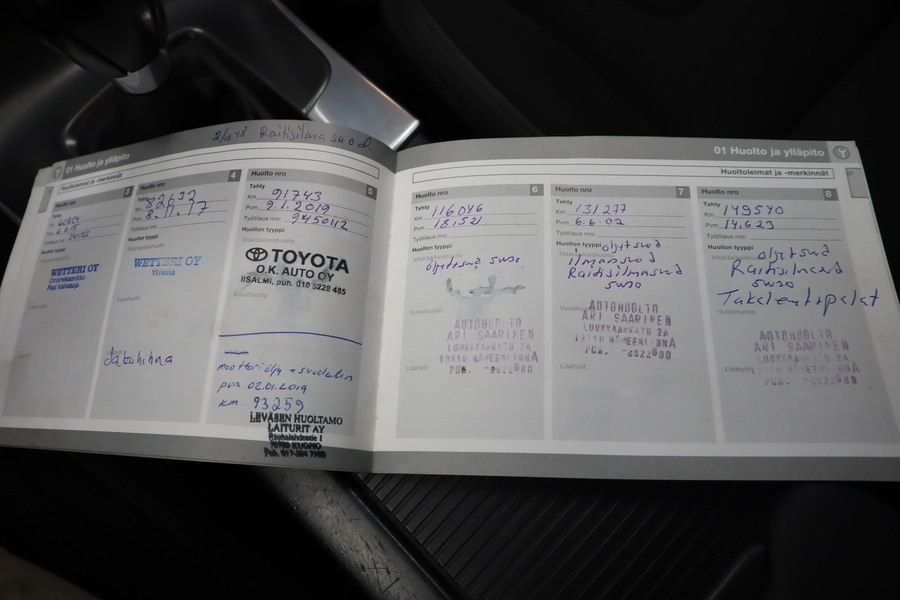 2/10-18 Raitisilmasuod
01 Huolto ja ylläpito
Huoltotoimet ja -merkinnät
Huolto nro 3
Tehty
Km
Pvm
Työtilaus nro: 241122
Huollon tyyppi
WETTERI OY
Vuosihuolto
Lisätyöt
Huolto nro 4
Tehty
Km 82632
Pvm 8.11.17
Työtilaus nro:
Huollon tyyppi
WETTERI OY
Ylivieska
Vuosihuolto
Jakohihna
Huolto nro 5
Tehty
Km 91743
Pvm 2.1.2019
Työtilaus nro: 2450112
Huollon tyyppi
TOYOTA
O.K. AUTO OY
IISALMI, puh. 010 5228 485
Vuosihuolto
moottoriöljy + suodatin
pvm 02.01.2019
km. 93259
LEVÄSEN HUOLTAMO
LAITURIT AY
Räphalahdentie 1
70780 KUOPIO
01 Huolto ja ylläpito
Huoltotoimet ja -merkinnät
Huolto nro 6
Tehty
Km 116046
Pvm 18.521
Työtilaus nro:
Huollon tyyppi
Määräaikaishuolto
öljytsuod 5w30
AUTOHUOLTO
ARI SAARINEN
LUUKKAANKATU 2A
13110 HÄMEENLINNA
PUH. -6622600
Lisätyöt
Huolto nro 7
Tehty
Km 131277
Pvm 6.6.02
Työtilaus nro:
Huollon tyyppi
Määräaikaishuolto
öljytsuod
ilmansuod
Raitisilmasuod
5w30
Vuosihuolto
AUTOHUOLTO
ARI SAARINEN
LUUKKAANKATU 2A
13110 HÄMEENLINNA
PUH. -6622600
Lisätyöt
Huolto nro 8
Tehty
Km 149540
Pvm 14.623
Työtilaus nro:
Huollon tyyppi
Määräaikaishuolto
öljytsuod
Raitisilmasuod
5w30
Takalevyt+palat
Vuosihuolto
AUTOHUOLTO
ARI SAARINEN
LUUKKAANKATU 2A
13110 HÄMEENLINNA
PUH. -6622600
Lisätyöt